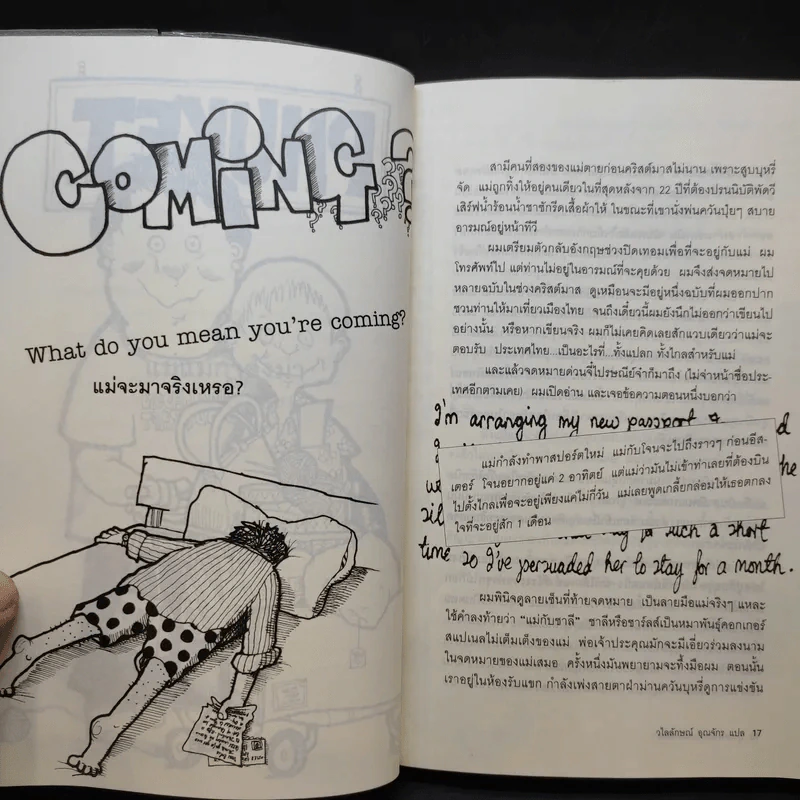 COMING ?
What do you mean you're coming?
แม่จะมาจริงเหรอ?
สามีคนที่สองของแม่ตายก่อนคริสต์มาสไม่นาน เพราะสูบบุหรี่
จัด แม่ถูกทิ้งให้อยู่คนเดียวในที่สุดหลังจาก 22 ปีที่ต้องปรนนิบัติพัดวี
เสิร์ฟน้ำร้อนน้ำชาซักรีดเสื้อผ้าให้ ในขณะที่เขานั่งพ่นควันปุ๋ยๆ สบาย
อารมณ์อยู่หน้าทีวี
ผมเตรียมตัวกลับอังกฤษช่วงปิดเทอมเพื่อที่จะอยู่กับแม่ ผม
โทรศัพท์ไป แต่ท่านไม่อยู่ในอารมณ์ที่จะคุยด้วย ผมจึงส่งจดหมายไป
หลายฉบับในช่วงคริสต์มาส ดูเหมือนจะมีอยู่หนึ่งฉบับที่ผมออกปาก
ชวนท่านให้มาเที่ยวเมืองไทย จนถึงเดี๋ยวนี้ผมยังนึกไม่ออกว่าเขียนไป
อย่างนั้น หรือหากเขียนจริง ผมก็ไม่เคยคิดเลยสักแวบเดียวว่าแม่จะ
ตอบรับ ประเทศไทย...เป็นอะไรที่...ทั้งแปลก ทั้งไกลสำหรับแม่
และแล้วจดหมายด่วนจี๋ไปรษณีย์จ๋าก็มาถึง (ไม่จ่าหน้าชื่อประ-
เทศอีกตามเคย) ผมเปิดอ่าน และเจอข้อความตอนหนึ่งบอกว่า
I'm arranging my new passport &
แม่กำลังทำพาสปอร์ตใหม่ แม่กับโจนจะไปถึงราวๆ ก่อนอีส-
เตอร์ โจนอยากอยู่แค่ 2 อาทิตย์ แต่แม่ว่ามันไม่เข้าท่าเลยที่ต้องบิน
ไปตั้งไกลเพื่อจะอยู่เพียงแค่ไม่กี่วัน แม่เลยพูดเกลี้ยกล่อมให้เธอตกลง
ใจที่จะอยู่สัก 1 เดือน
such a short
time so I've persuaded her to stay for a month.
ผมพินิจดูลายเซ็นที่ท้ายจดหมาย เป็นลายมือแม่จริงๆ แหละ
ใช้คำลงท้ายว่า "แม่กับชาลี" ชาลีหรือชาร์ลส์เป็นหมาพันธุ์คอกเกอร์
สแปเนลไม่เต็มเต็งของแม่ พ่อเจ้าประคุณมักจะมีเอี่ยวร่วมลงนาม
ในจดหมายของแม่เสมอ ครั้งหนึ่งมันพยายามจะทึ้งมือผม ตอนนั้น
เราอยู่ในห้องรับแขก กำลังเพ่งสายตาฝ่าม่านควันบุหรี่ดูการแข่งขัน
วไลลักษณ์ อุณจักร แปล 17